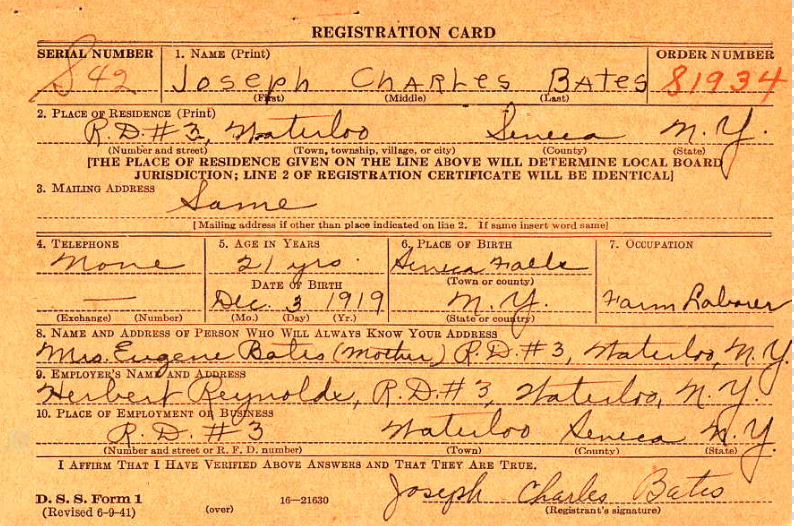 REGISTRATION CARD
SERIAL NUMBER 1. NAME (Print) ORDER NUMBER
S 42 JOSEPH CHARLES BATES S1934
(First) (Middle) (Last)
2. PLACE OF RESIDENCE (Print)
R.D.#3, Waterloo Seneca N.Y.
(Number and street) (Town, township, village, or city) (County) (State)
[THE PLACE OF RESIDENCE GIVEN ON THE LINE ABOVE WILL DETERMINE LOCAL BOARD
JURISDICTION; LINE 2 OF REGISTRATION CERTIFICATE WILL BE IDENTICAL]
3. MAILING ADDRESS
Same
[Mailing address if other than place indicated on line 2. If same insert word same]
4. TELEPHONE 5. AGE IN YEARS 6. PLACE OF BIRTH 7. OCCUPATION
None 21 yrs. Seneca Falls
(Town or county)
DATE OF BIRTH
— Dec. 3 1919 N.Y. Farm Laborer
(Exchange) (Number) (Mo.) (Day) (Yr.) (State or country)
8. NAME AND ADDRESS OF PERSON WHO WILL ALWAYS KNOW YOUR ADDRESS
Mrs. Eugene Bates (Mother) R.D.#3, Waterloo, N.Y.
9. EMPLOYER'S NAME AND ADDRESS
Herbert Reynolds, R.D.#3, Waterloo, N.Y.
10. PLACE OF EMPLOYMENT OR BUSINESS
R.D.#3 Waterloo Seneca N.Y.
(Number and street or R. F. D. number) (Town) (County) (State)
I AFFIRM THAT I HAVE VERIFIED ABOVE ANSWERS AND THAT THEY ARE TRUE.
D. S. S. Form 1
(Revised 6-9-41) (over) 16—21630
Joseph Charles Bates
(Registrant's signature)